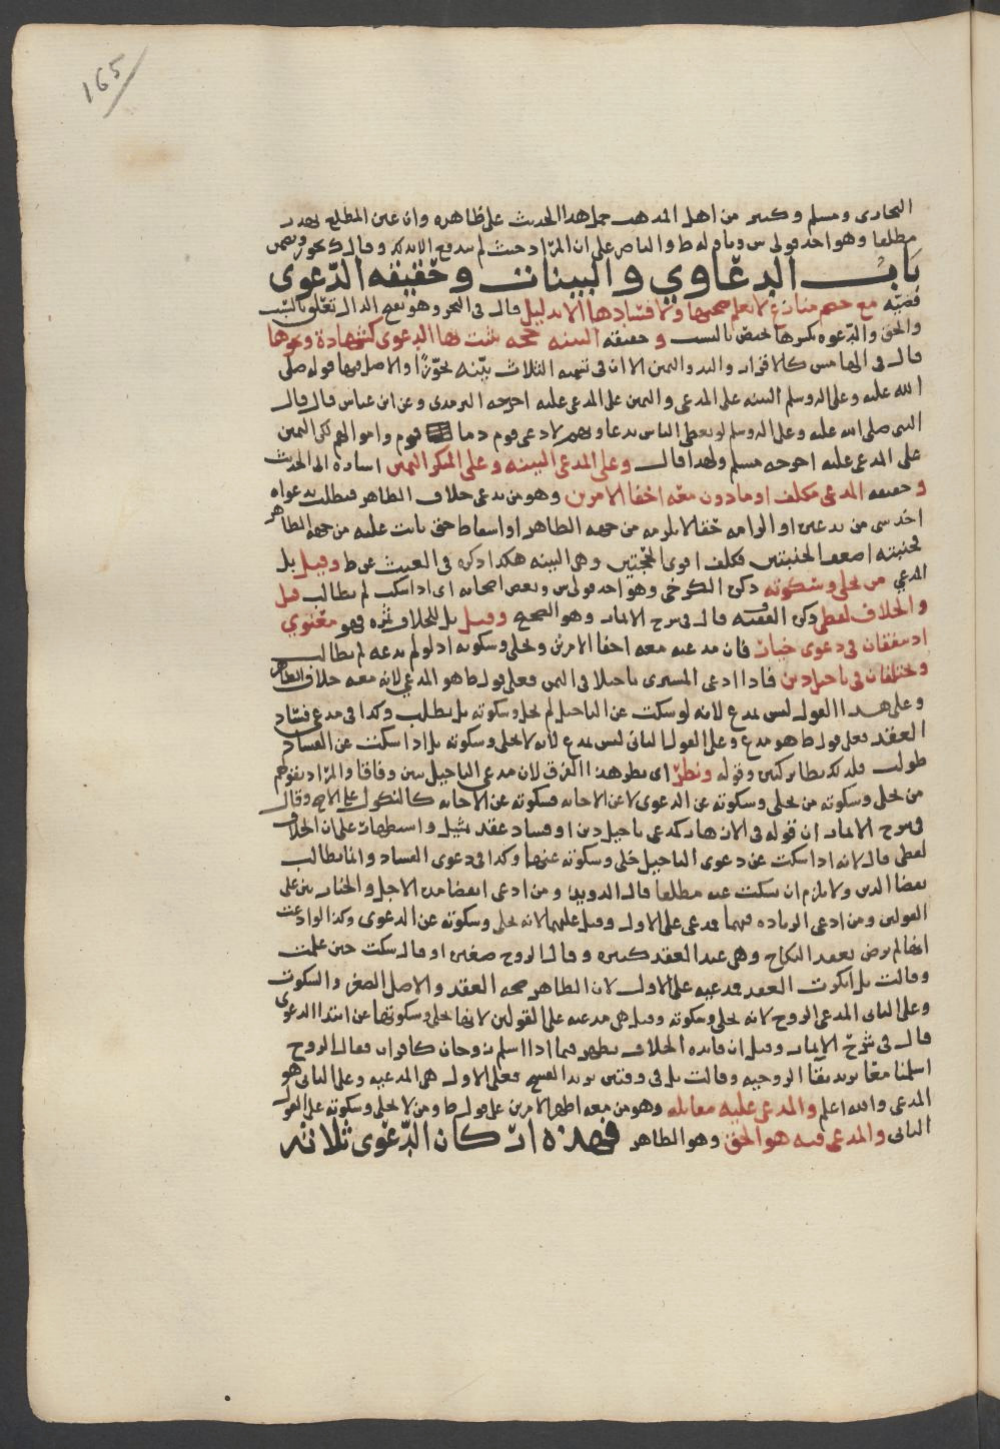 165
البخاري ومسلم وكثير من اهل المذهب حمل هذا الحديث على ظاهره وان عين المطلع هدر
مطلقا وهو احد قولي س وتاوله ط والناصر على ان المراد حيث لم يندفع الا بذلك وقال ك
باب الدعاوي والبينات وحقيقه الدعوى
قضيه مع خصم منازع لا يعلم صحتها ولا فسادها الا بدليل قال في البحر وهو بفتح الدال تعلق بالنسب
والحق والدعوه بكسرها تختص بالنسب وحقيقه البينه حجه تثبت بها الدعوى كشهادة ونحوها
قال في الهامش كالاقرار والرد واليمين الا ان في تسميه الثلاث بيّنه تجوّزًا والاصل فيها قوله صلى
الله عليه وعلى اله وسلم البينه على المدعي واليمين على المدعى عليه اخرجه الترمدي وعن ابن عباس قال قال
النبي صلى الله عليه وعلى اله وسلم لو يعطى الناس بدعاويهم لادعى قوم دما قوم واموالهم لكن اليمين
على المدعى عليه اخرجه مسلم ولهدا قال وعلى المدعي البينه وعلى المنكر اليمين اشارة الى الحديث
وحقيقه المدعي مكلف او مادون معه اخفا الامرين وهو من يدعي خلاف الظاهر فيطلب بدعواه
اخد شي من يد غيره او الزامه حقا لا يلزمه من جهه الظاهر او اسقاط حق ثابت عليه من جهه الظاهر
فجنبته اضعف الجنبتين فكلف اقوى الحجتين وهي البينه هكدا دكره في الغيث عن ط وقيل بل
المدعي من يخلى وسكوته دكره الكرخي وهو احد قولي س وبعض اصحابه اي ادا سكت لم يطالب قيل
والخلاف لفظي دكره الفقيه ف قال في شرح الاثمار وهو الصحيح وقيل بل للخلاف ثمره فهو معنوي
اد يتفقان في دعوى خيار فان مدعيه معه اخفا الامرين ويخلى وسكوته اد لو لم يدعه لم يطالب
ويختلفان في تاجيل دين فادا ادعى المشتري تاجيلا في الثمن فعلى قول ط هو المدعي لانه معه خلاف الظاهر
وعلى هدا القول ليس بمدع لانه لو سكت عن التاجيل لم يخل وسكوته بل يطلب وكدا في مدعي فساد
العقد فعلى قول ط هو مدع وعلى القول الثاني ليس بمدع لانه لا يخلى وسكوته بل ادا سكت عن الفساد
طولب فلدلك نظائر كثيره وقوله ونظر اي نظر هدا الفرق لان مدعي التاجيل مدين وفاقا والمراد بقولهم
من يخلى وسكوته من يخلى وسكوته عن الدعوى لا عن الاجابه فسكوته عن الاجابه كالنكول على الاصح وقال
في شرح الاثمار ان قوله في الازهار كدعي تاجيل دين او فساد عقد تمثيل واستظهار على ان الخلاف
لفظي قال لانه ادا سكت عن دعوى التاجيل خلي وسكوته عنها وكدا في دعوى الفساد وانما يطالب
بقضا الدين ولا يلزم ان يسكت عنه مطلقا قال الدويد ومن ادعى انقضا مده الاجل والخيار بني على
القولين ومن ادعى الزياده فيهما فمدعي على الاول وقيل عليهما لانه يخلى وسكوته عن الدعوى وكدا لو ادعت
انها لم ترض بعقد النكاح وهي عند العقد كبيره وقال الزوج صغيره او قال سكت حين علمت
وقالت بل انكرت العقد فمدعيه على الاول لان الظاهر صحه العقد والاصل الصغر والسكوت
وعلى الثاني المدعي الزوج لانه يخلى وسكوته وقيل هي مدعيه على القولين لانها يخلى وسكوتها عن ابتدا الدعوى
قال في شرح الاثمار وقيل ان فائده الخلاف تظهر فيما ادا اسلم زوجان كافران فقال الزوج
اسلمنا معا يريد بقا الزوجيه وقالت بل في وقتين تريد الفسخ فعلى الاول هي المدعيه وعلى الثاني هو
المدعي والله اعلم والمدعى عليه مقابله وهو من معه اظهر الامرين على قول ط ومن لا يخلى وسكوته على القول
الثاني والمدعى فيه هو الحق وهو الظاهر فهده اركان الدعوى ثلاثه